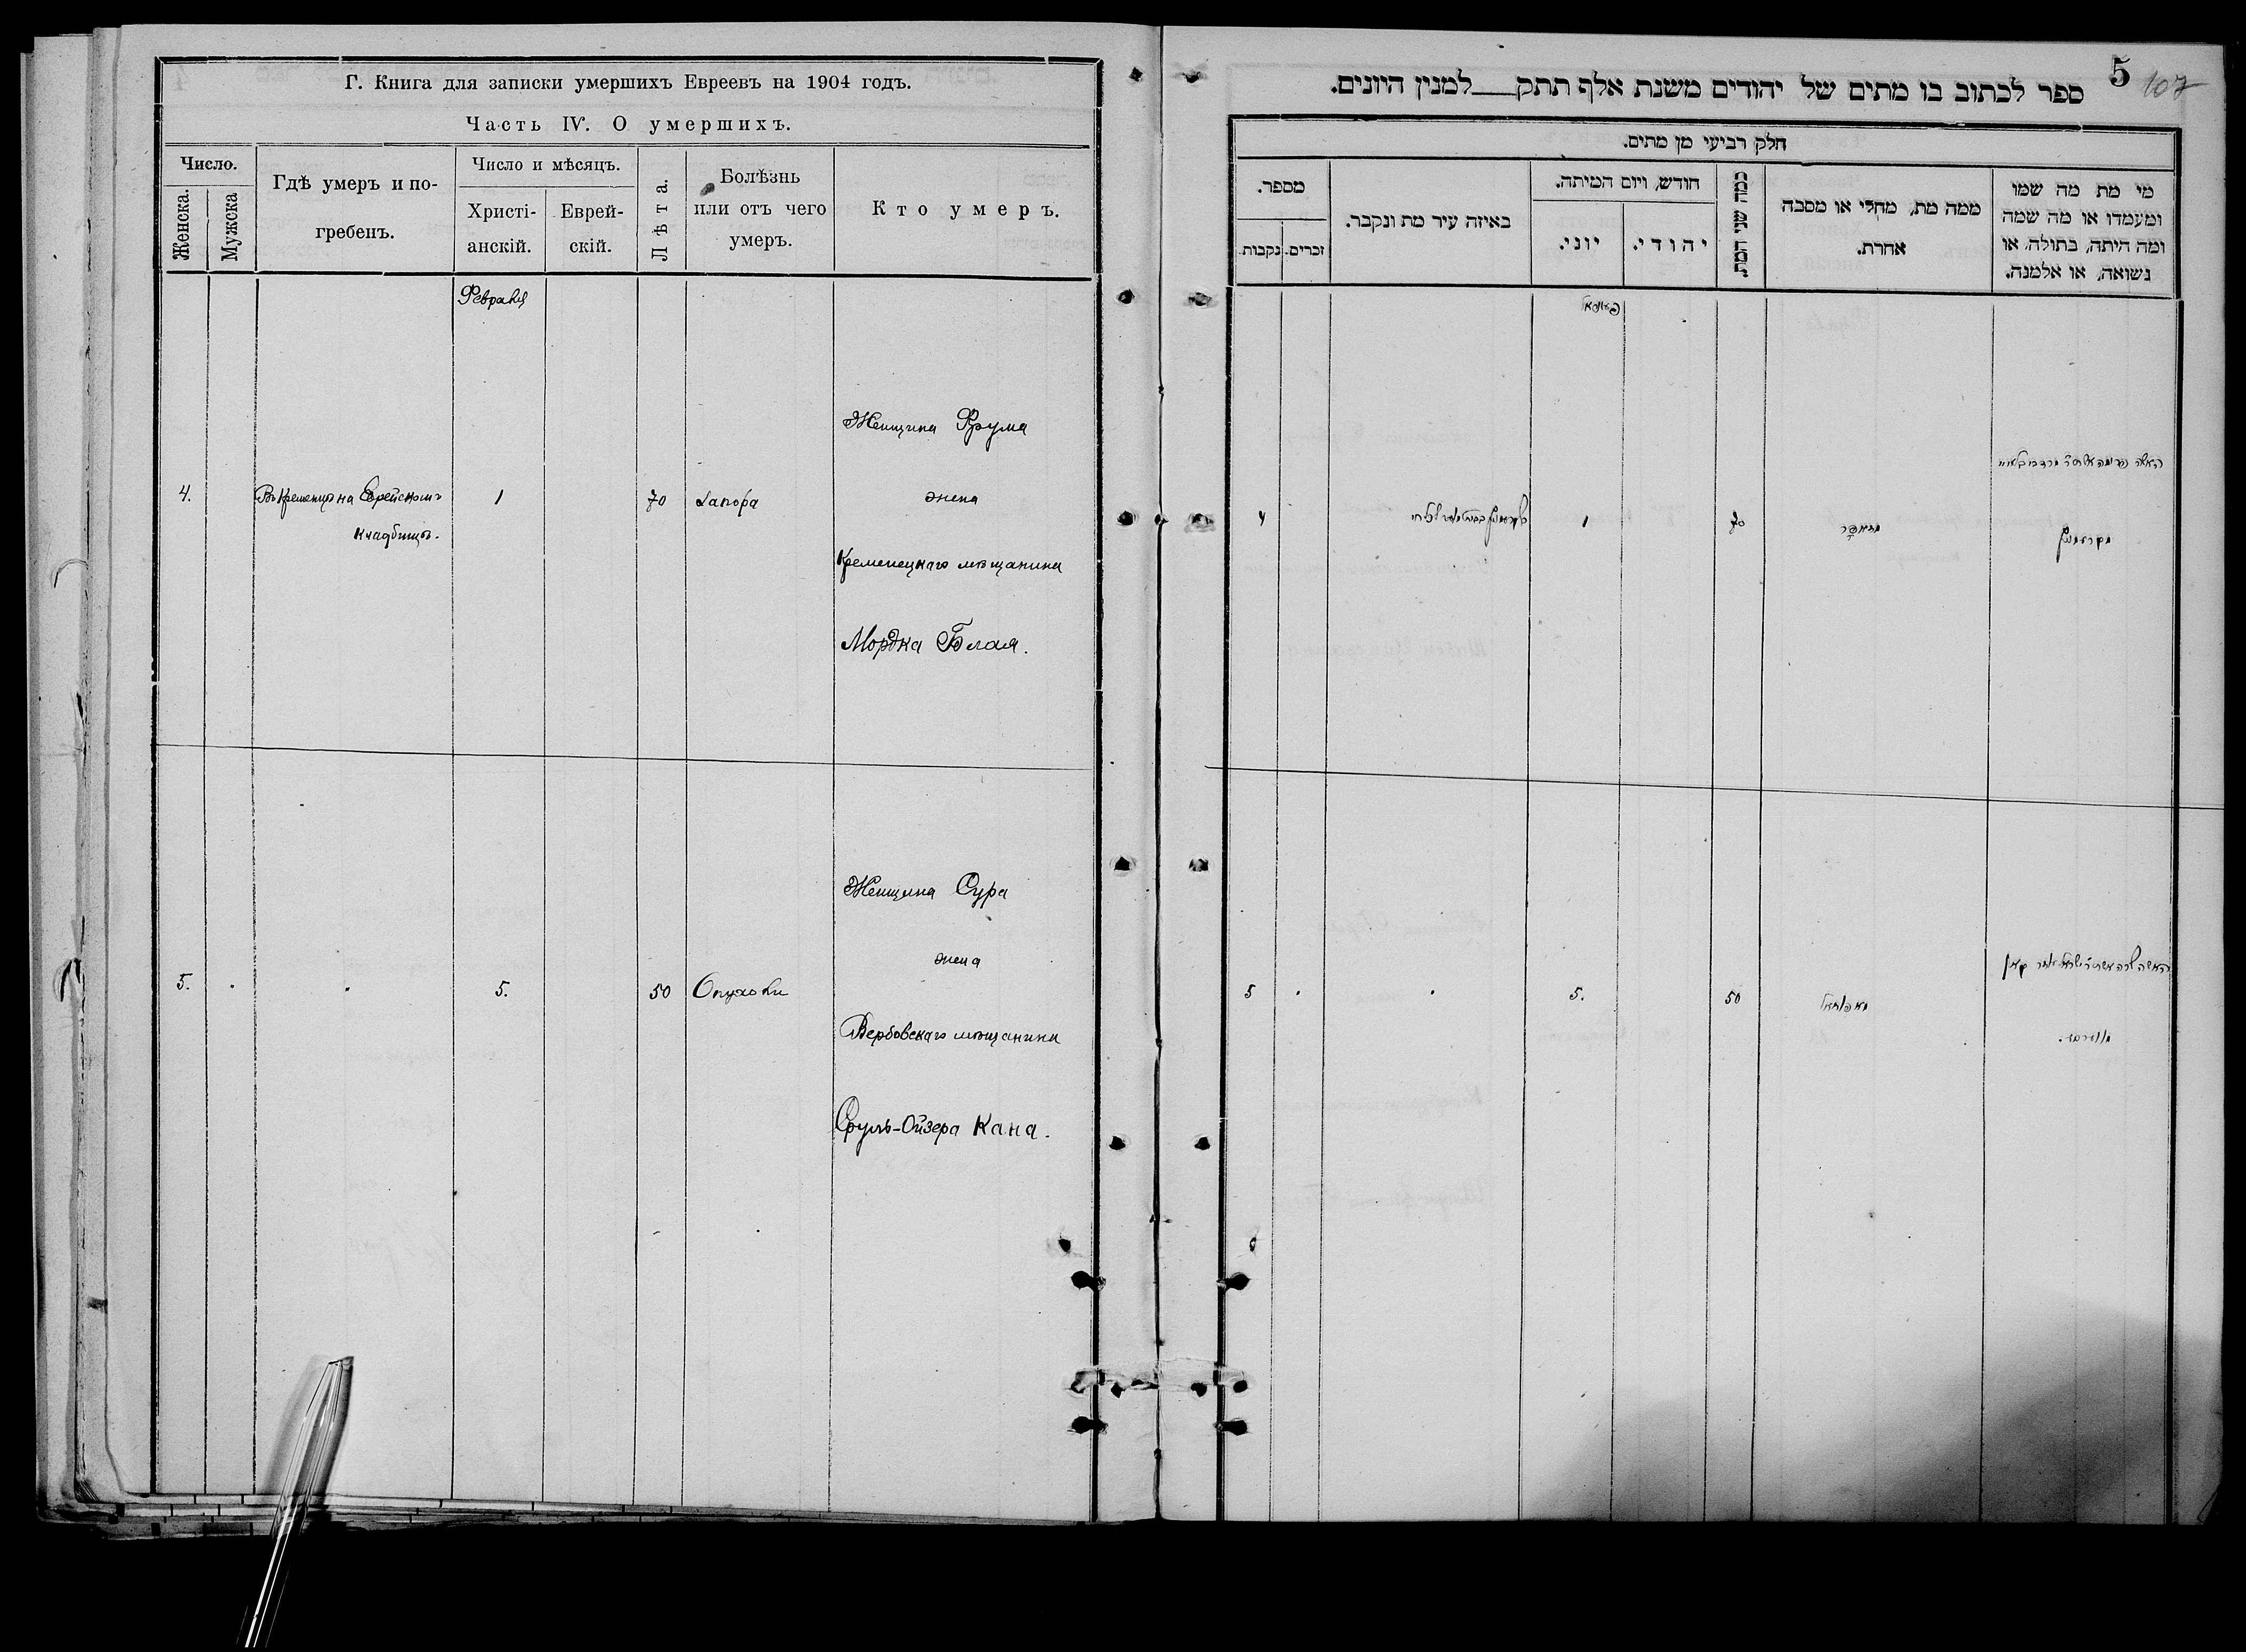 Г. Книга для записки умершихъ Евреевъ на 1904 годъ.
Часть IV. О умершихъ.
Число.
Женска.
Мужска
Гдѣ умеръ и по-
гребенъ.
Число и мѣсяцъ.
Христі-
анскій.
Еврей-
скій.
Лѣта.
Болѣзнь
или отъ чего
умеръ.
Кто умеръ.
Февраля
4.
Въ Кременцѣ на Еврейскомъ
кладбищѣ.
1
70
Запора
Женщина Фрума
жена
Кременецкаго мѣщанина
Мордка Блая.
5.
5.
50
Опухоли
Женщина Сура
жена
Вербовскаго мѣщанина
Сруль-Ойзера Кана.
5
107
ספר לכתוב בו מתים של יהודים משנת אלף תתק למנין היונים.
חלק רביעי מן מתים.
מספר.
נקבות.
זכרים.
באיזה עיר מת ונקבר.
חודש, ויום המיתה.
יוני.
יהודי.
כמה שני המת.
ממה מת, מחלי או מסבה
אחרת.
מי מת מה שמו
ומעמדו או מה שמה
ומה היתה, בתולה, או
נשואה, או אלמנה.
4
1
70
5
5.
50